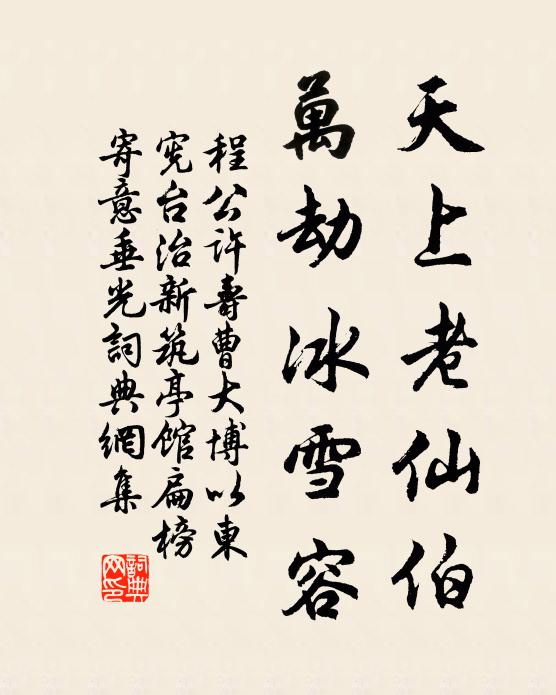 天上老仙伯
萬劫冰雪容
程公許壽曹大博以東
宪台治新筑亭馆扁榜
寄意垂光詞典網集
詞典
网印